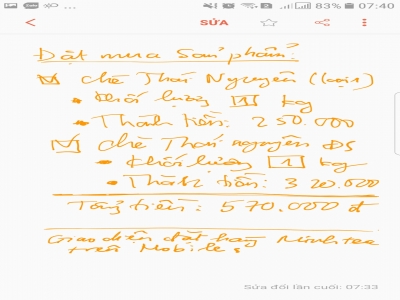 83% 07:40
SỬA
Đặt mua Sản phẩm:
Chè Thái Nguyên (loại 1)
Khối lượng 1 kg
Thành tiền: 250.000
Chè Thái nguyên ĐS
Khối lượng 1 kg
Thành tiền: 320.000
Tổng tiền: 570.000 đ
Giao diện đặt hàng Minh tea
trên Mobile:
Sửa đổi lần cuối: 07:33